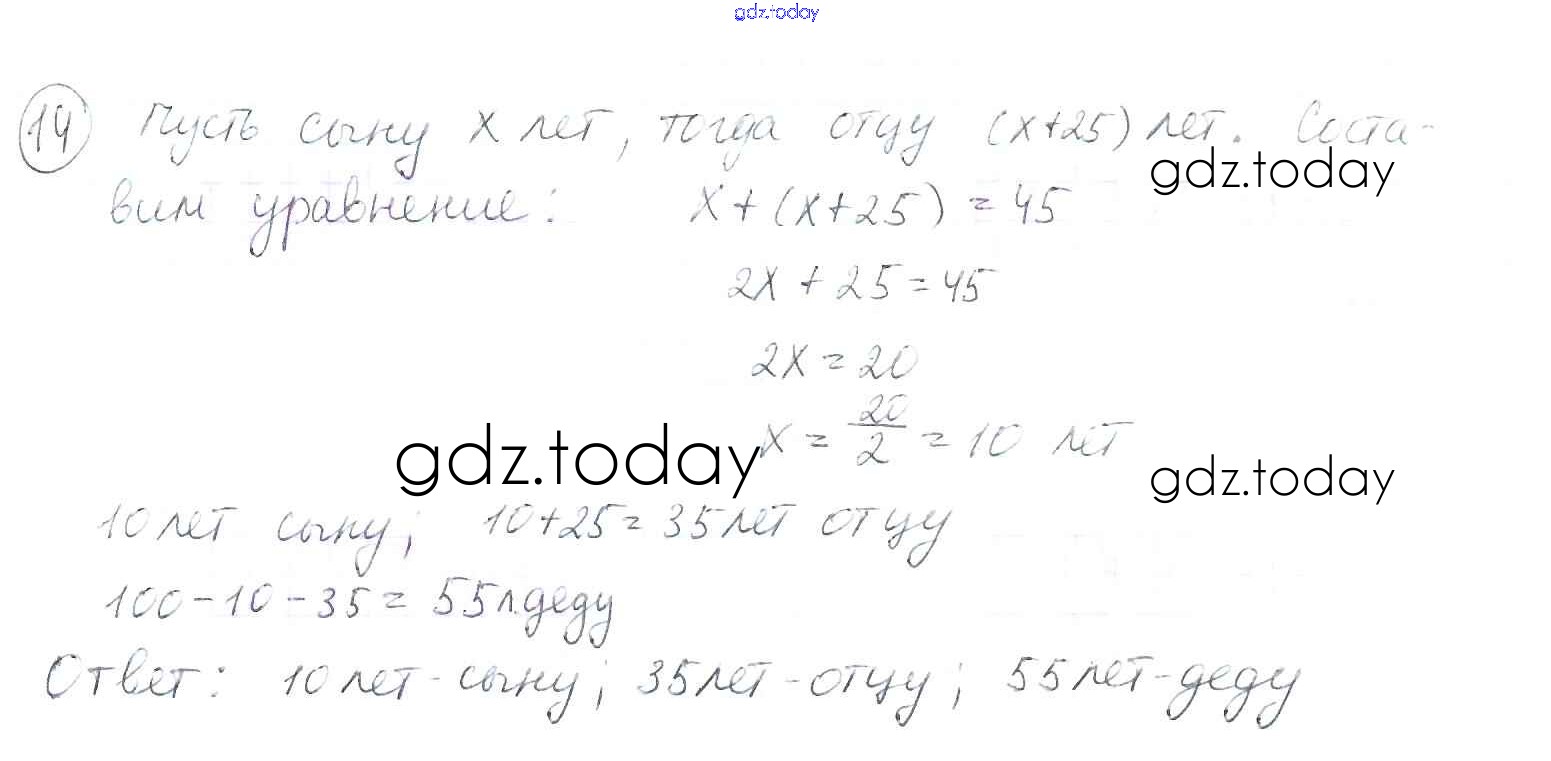 gdz.today
14 Пусть сыну x лет, тогда отцу (x+25) лет. Соста-
gdz.today
вим уравнение: x+(x+25)=45
2x+25=45
2x=20
x=20/2=10 лет
gdz.today
gdz.today
10 лет сыну; 10+25=35 лет отцу
100-10-35=55 л. деду
Ответ: 10 лет - сыну; 35 лет - отцу; 55 лет - деду